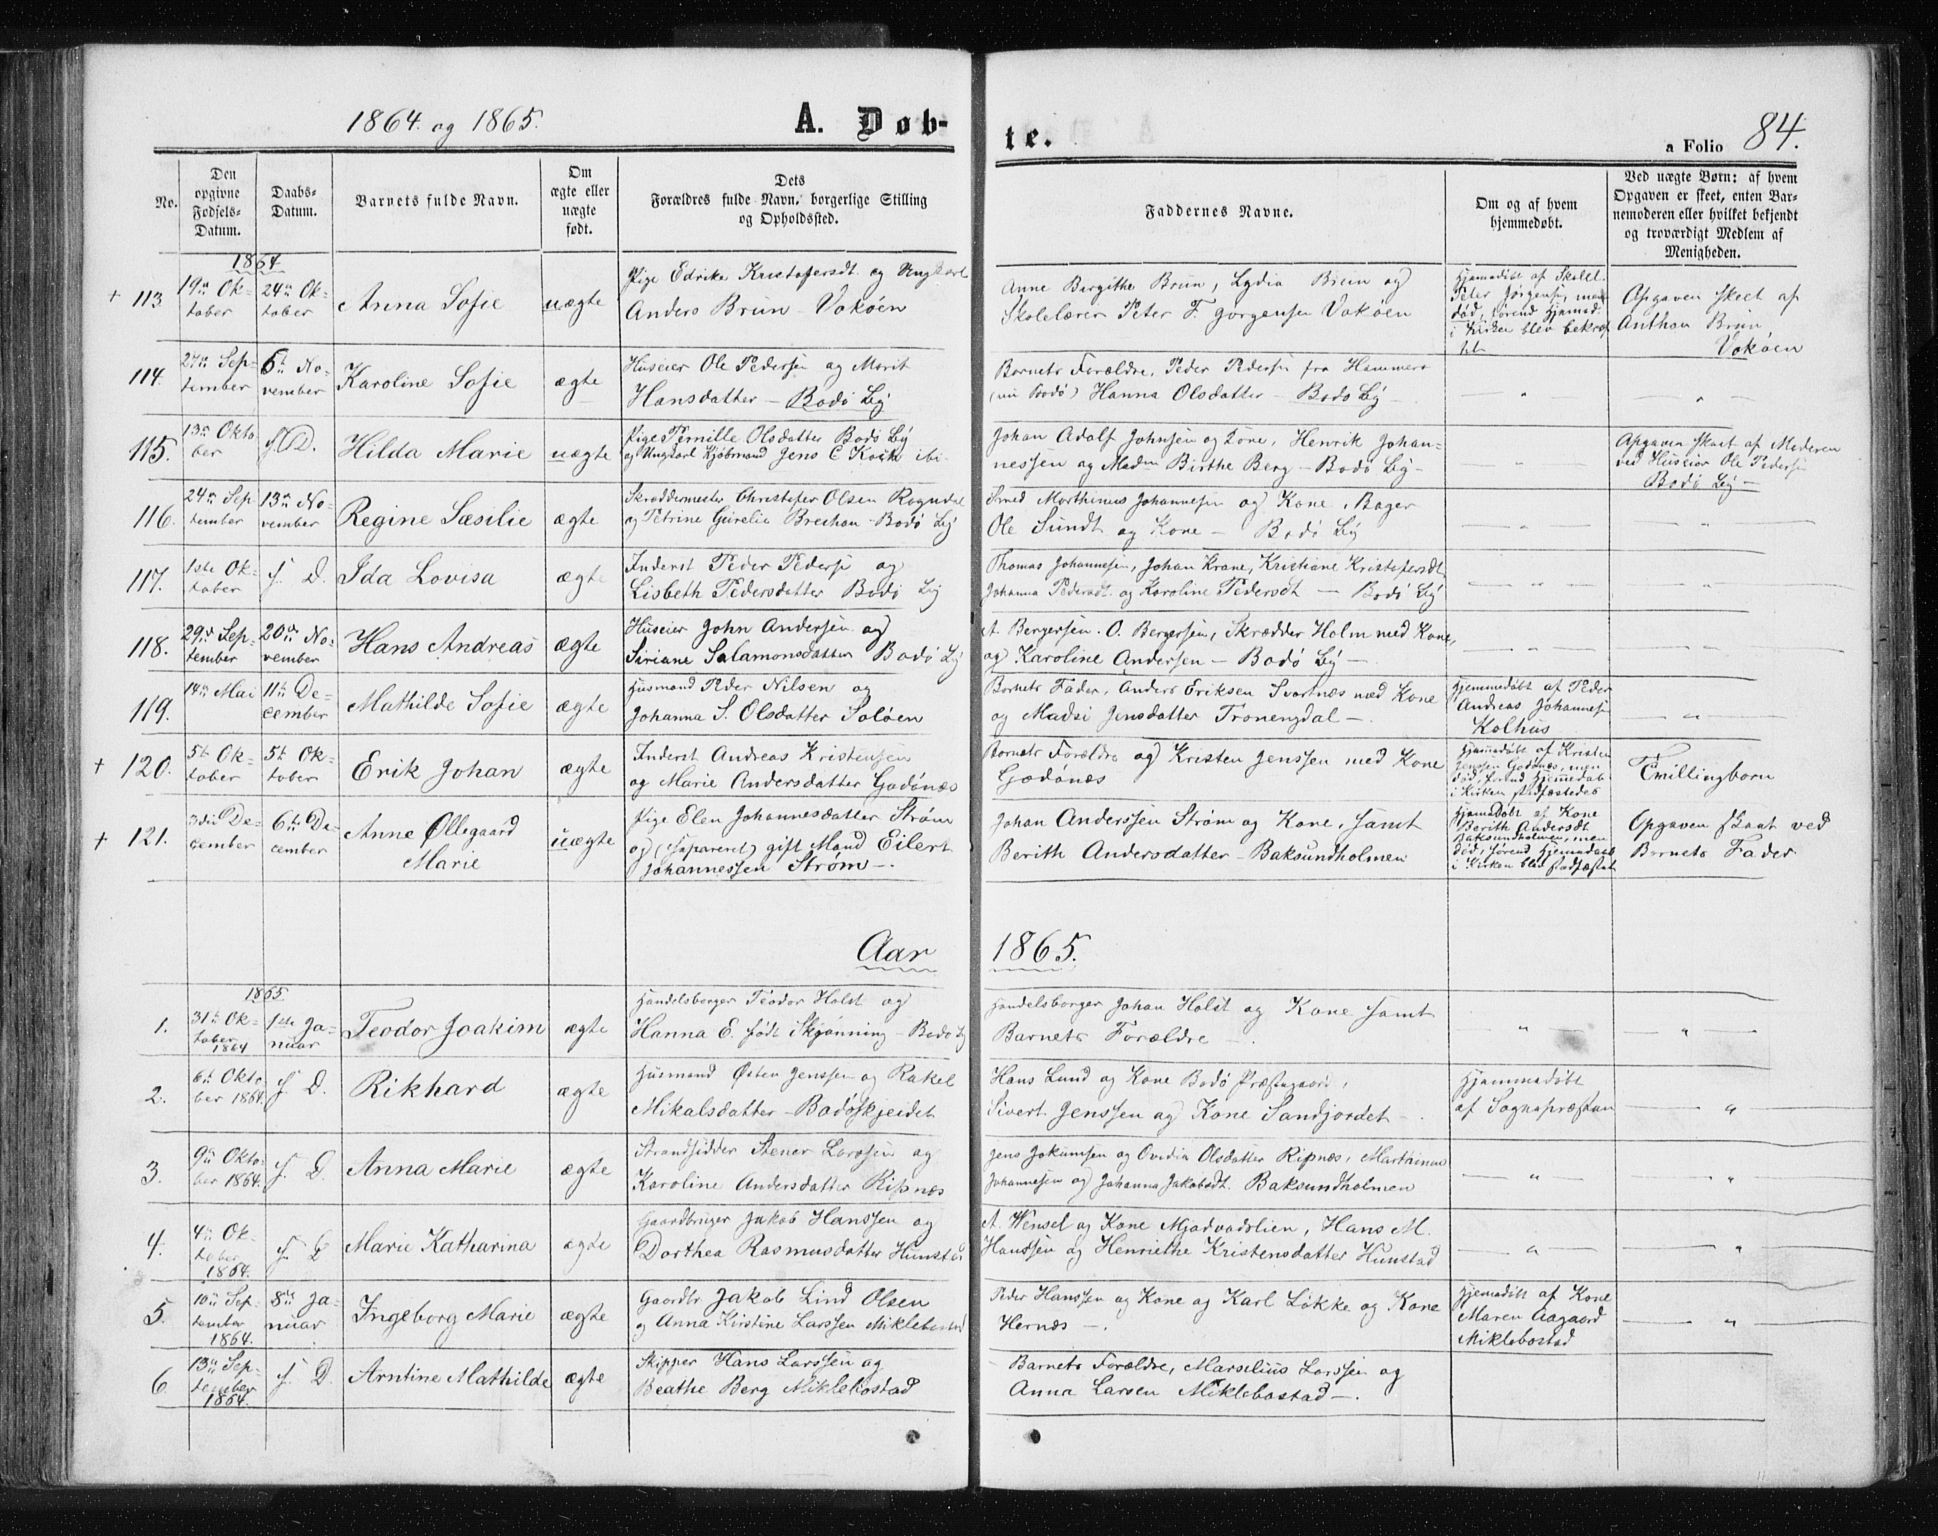 1864. og 1865.
A. Døb-
te.
a Folio 84.
No.
Den opgivne Fødsels-Datum.
Daabs-Datum.
Barnets fulde Navn.
Om ægte eller uægte født.
Dets Forældres fulde Navn, borgerlige Stilling og Opholdssted.
Faddernes Navne.
Om og af hvem hjemmedøbt.
Ved uægte Børn: af hvem Opgaven er skeet, enten Barnemoderen eller hvilket bekjendt og troværdigt Medlem af Menigheden.
1864
+ 113 19de Oktober 24de Oktober Anna Sofie uægte
Pige Edrike Kristofersdt. og Ungkarl
Anders Brun - Vokøen
Anne Birgithe Brun, Lydia Brun og
Skolelærer Peter F. Jørgensen Vokøen
Hjemmedøbt af Skolel.
Peter Jørgensen, men
død, førend Hjemmed.
i Kirken blev bekræf
tet
Opgaven skeet af
Anthon Brun
Vokøen
114. 27de September 6te November Karoline Sofie ægte
Huseier Ole Pedersen og Marit
Hansdatter - Bodø By
Barnets Forældre, Peder Pedersen fra Hammerø
(nu Bodø) Hanna Olsdatter - Bodø By -
— " —
— " —
115. 13de Oktober s. D. Hilda Marie uægte
Pige Pernille Olsdatter Bodø By
og Ungkarl Kjøbmand Jens C Koch ibi.
Johan Adolf Johnsen og Kone, Henrik Johan-
nessen og Madm Birthe Berg - Bodø By -
"
Opgaven skeet af Moderen
ved Huseier Ole Pedersen
Bodø By -
116. 24de September 13de November Regine Sæsilie ægte
Skræddermester Christofer Olsen Rognda
og Petrine Gurelia Brechan - Bodø By
Smed Marthinus Johannesen og Kone, Bager
Ole Sundt og Kone - Bodø By
— " —
— " —
117. 1ste Oktober s. D. Ida Lovisa ægte
Inderst Peder Pedersen og
Lisbeth Pedersdatter Bodø By
Thomas Johannesen, Johan Krane, Kristiane Kristofersdt.
Johanna Pedersdt. og Karoline Pedersdt - Bodø By
— " —
— " —
118. 29de September 20de November Hans Andreas ægte
Huseier John Andersen og
Siriane Salamonsdatter Bodø By
A. Bergersen. O. Bergersen, Skrædder Holm med Kone,
og Karoline Andersen - Bodø By -
— " —
— " —
119. 14de Mai 11te December Mathilde Sofie ægte
Husmand Peder Nilsen og
Johanna S. Olsdatter Soløen
Barnets Fader, Anders Eriksen Svartnæs med Kone
og Madsi Jensdatter Tronengdal -.
Hjemmedøbt af Peder
Andreas Johannesen
Kolhus
— " —
+ 120. 5te Oktober 5te Oktober Erik Johan ægte
Inderst Andreas Kristensen
og Marie Andersdatter Godønæs
Barnets Forældre og Kristen Jenssen med Kone
Godønæs
Hjemmedøbt af Kristen
Jenssen Godønæs, men
død, førend Hjemmedaab
i Kirken stadfæstedes
Tvillingbarn
+ 121. 3die December 6te December Anne Øllegaard Marie uægte
Pige Elen Johannesdatter Strøm
og (separeret) gift Mand Eilert
Johannessen Strøm -.
Johan Anderssen Strøm og Kone, samt
Berith Andersdatter - Baksundholmen
Hjemmedøbt af Kone
Berith Andersdt.
Baksundholmen, men
død, førend Hjemmedaab
i Kirken blev stadfæstet
Opgaven skeet ved
Barnets Fader
Aar 1865.
1865.
1. 31te Oktober 1864 1ste Januar Teodor Joakim ægte
Handelsborger Teodor Holst og
Hanna E. født Skjønning - Bodø By
Handelsborger Johan Holst og Kone samt
Barnets Forældre -.
"
— " —
2. 6te Oktober 1864. s. D. Rikhard ægte
Husmand Østen Jenssen og Rakel
Mikalsdatter - Bodøskjeidet
Hans Lund og Kone Bodø Præstegaard,
Sivert Jenssen og Kone Sandjordet -.
Hjemmedøbt
af Sognepræsten
— " —
3. 9de Oktober 1864. s. D. Anna Marie ægte
Strandsidder Stener Larssen og
Karoline Andersdatter Ripnæs
Jens Jokumsen og Ovidia Olsdatter Ripnæs, Martinus
Johannesen og Johanna Jakobsdt. Baksundholmen
— " —
— " —
4. 4de Oktober 1864. s. D. Marie Katharina ægte
Gaardbruger Jakob Hanssen og
Dorthea Rasmusdatter Hunstad
A. Wensel og Kone Mjadvadslien, Hans M.
Hanssen og Henriethe Kristensdatter Hunstad
— " —
"
5. 10de September 1864. 8de Januar Ingeborg Marie ægte
Gaardbr Jakob Lind Olsen
og Anna Kirstine Larssen Miklebostad
Peder Hanssen og Kone og Karl Løkke og Kone
Hernæs -.
Hjemmedøbt af Kone
Maren Aagaard
Miklebostad
— " —
6 13de September 1864. s. D. Arntine Mathilde ægte
Skipper Hans Larssen og
Beathe Berg Miklebostad
Barnets Forældre, Marselius Larssen og
Anna Larsen Miklebostad -.